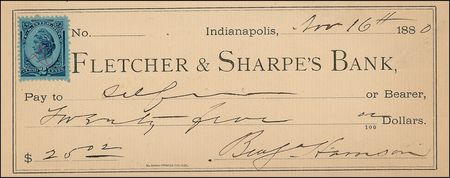 No. Indianapolis, Nov 16th 1880
FLETCHER & SHARPE'S BANK,
Pay to Self or Bearer,
Twenty five 00/100 Dollars.
$ 25.00 Benj Harrison